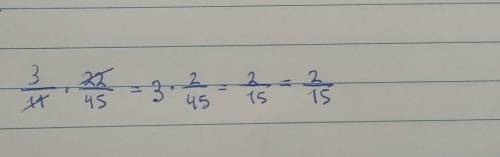 3/11 · 22/45 = 3 · 2/45 = 2/15 = 2/15